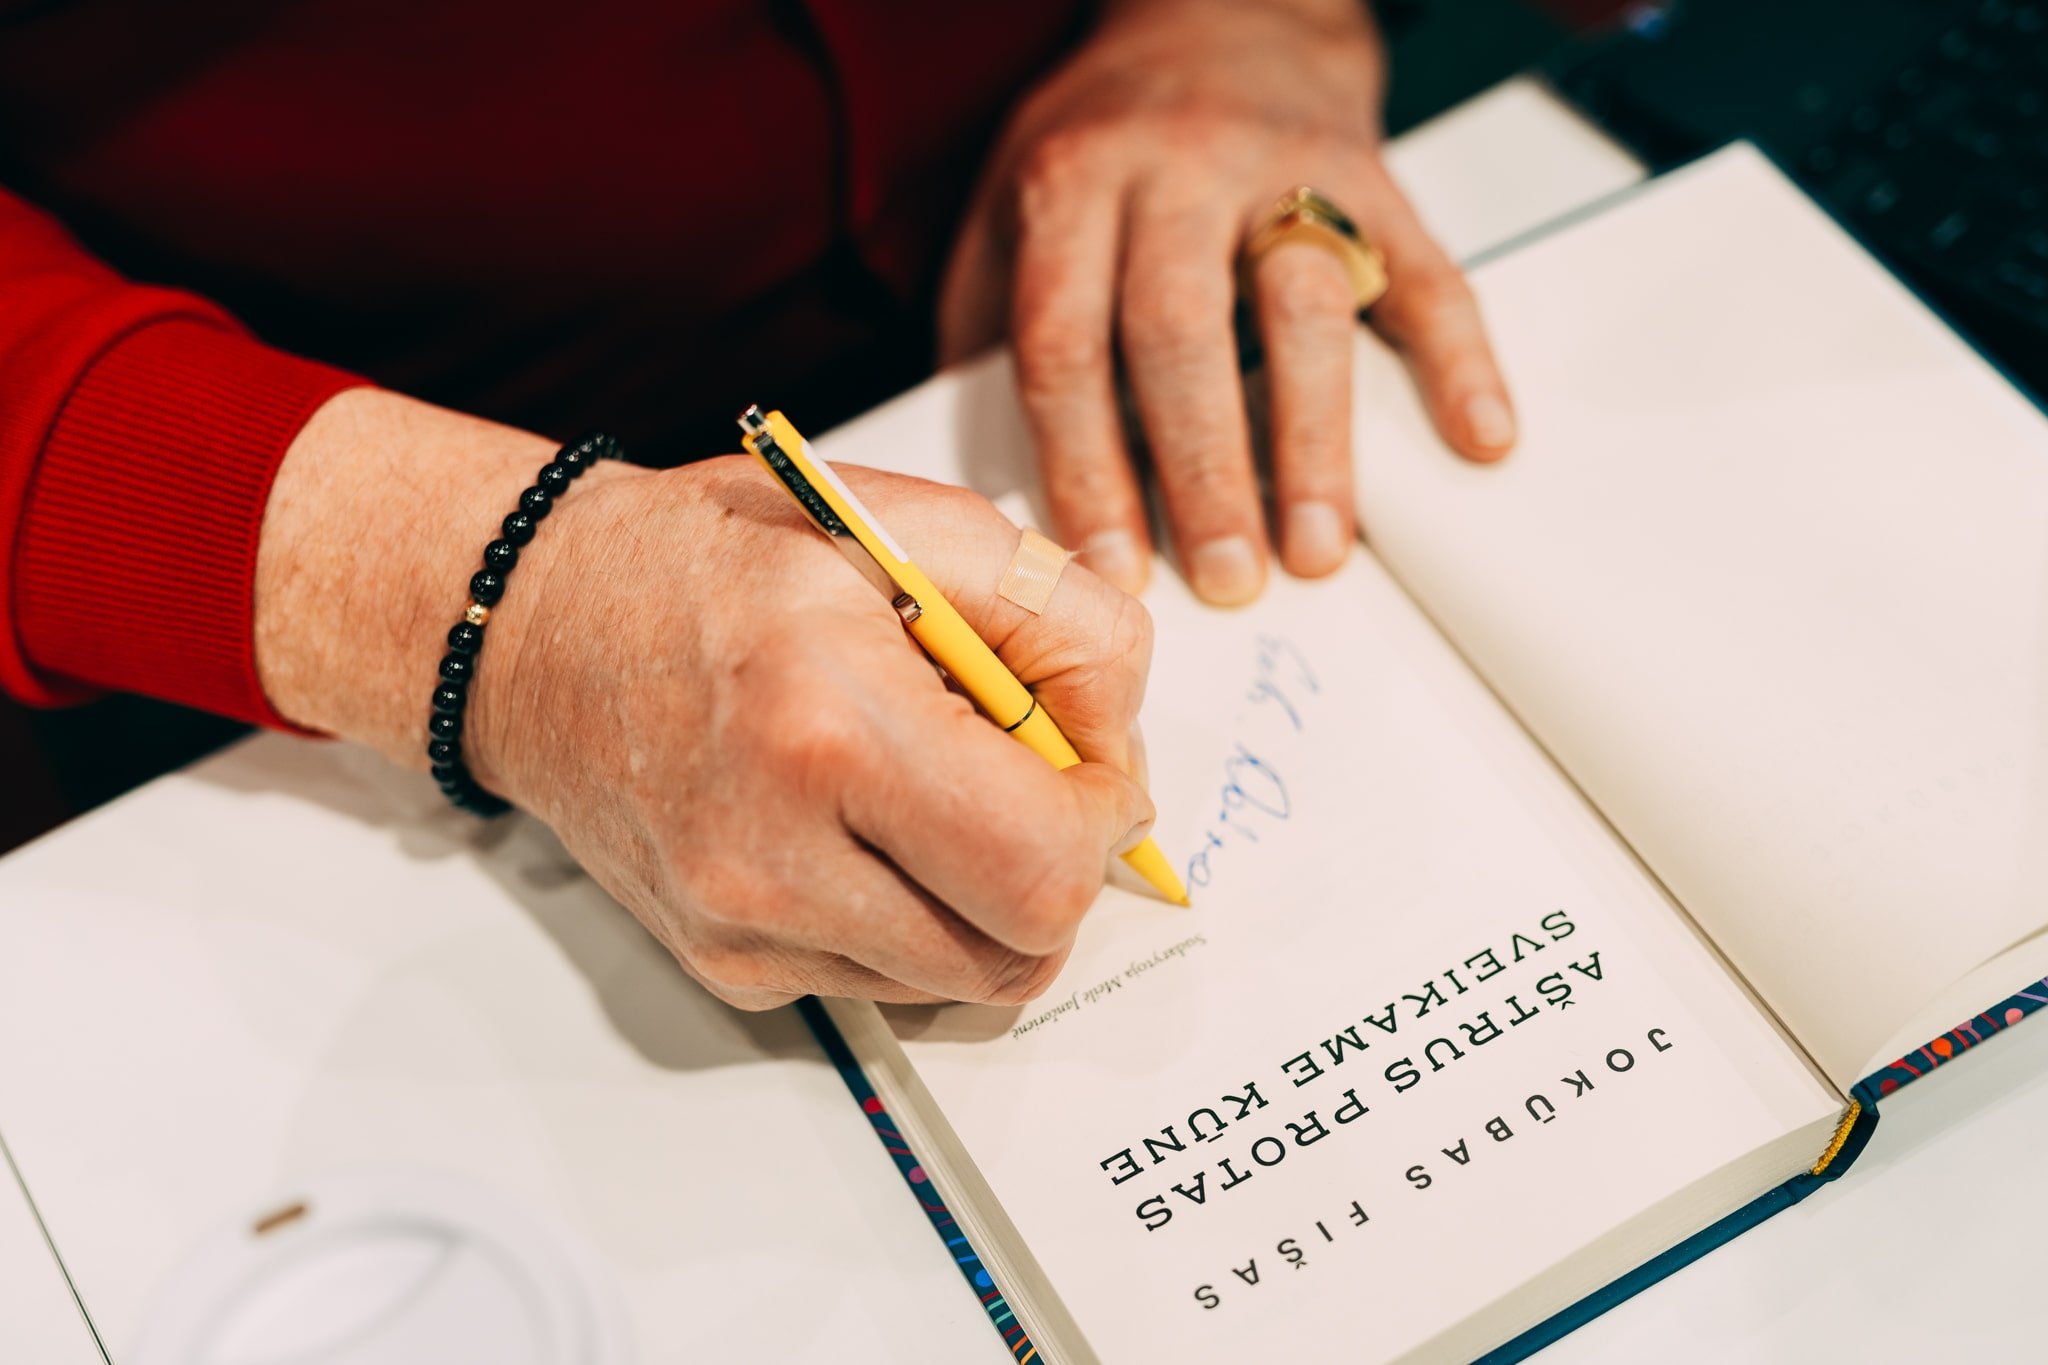 JOKŪBAS FIŠAS
AŠTRUS PROTAS
SVEIKAME KŪNE
Sudarytoja Meilė Jančorienė